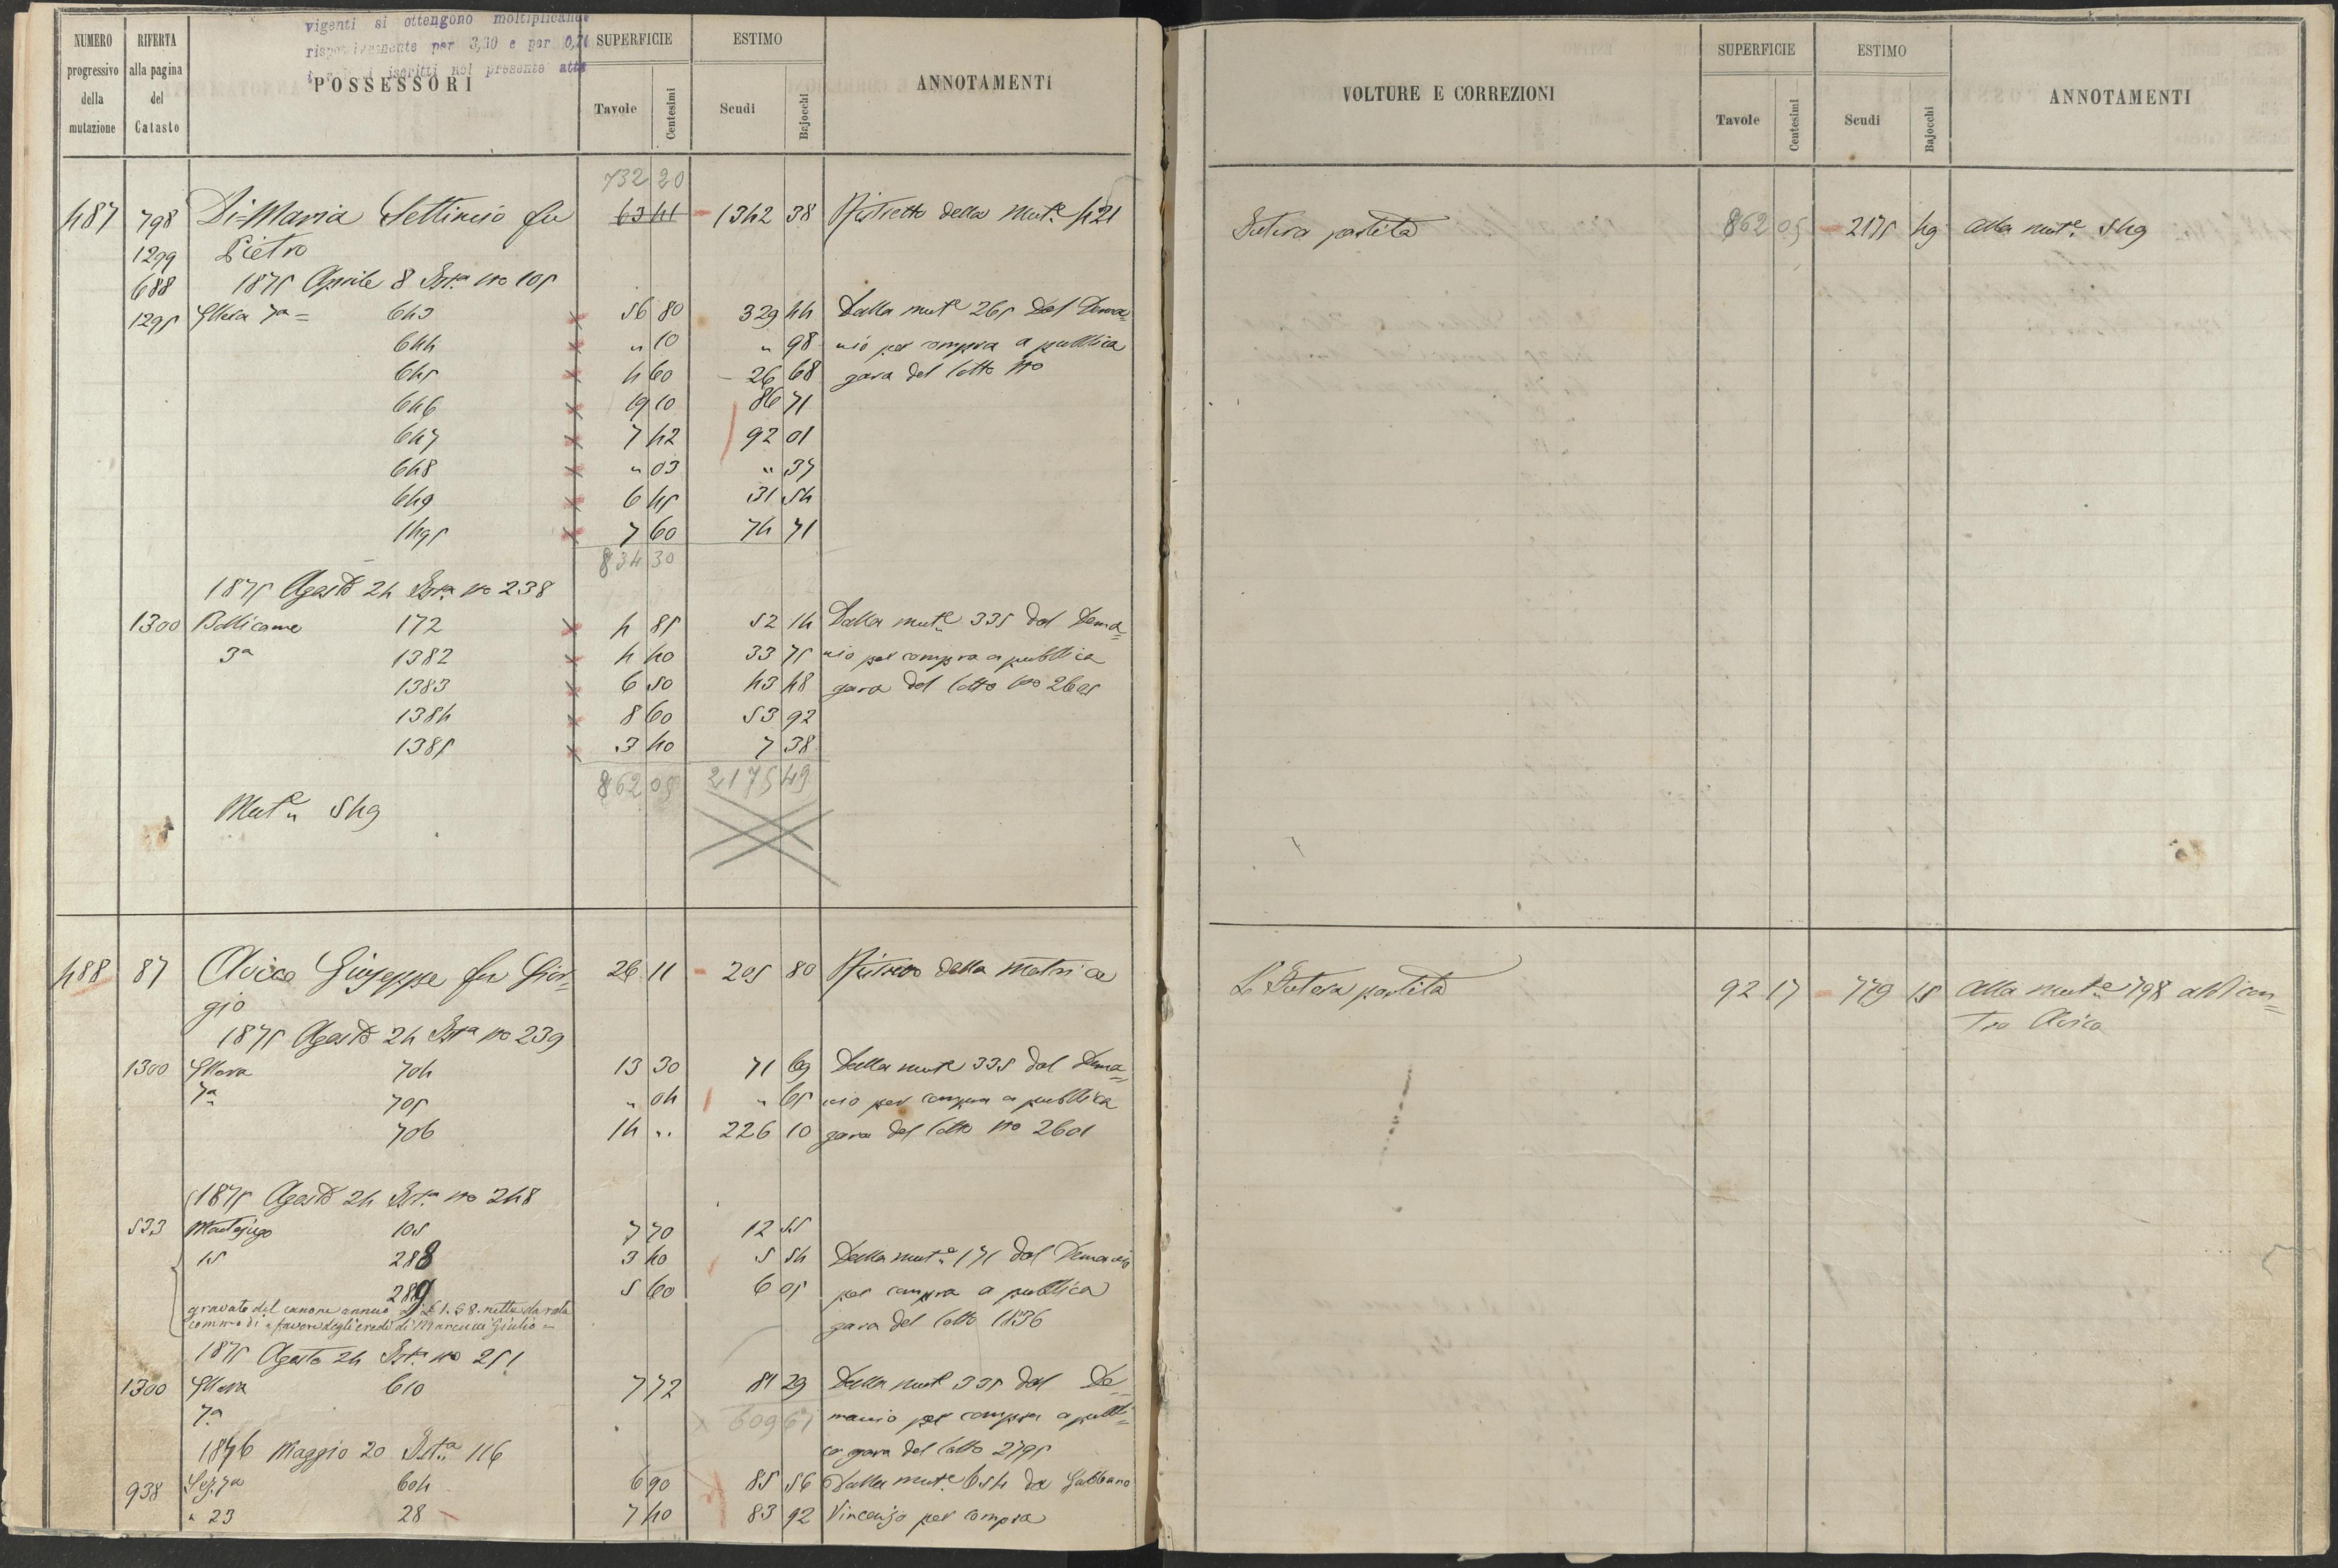 vigenti si ottengono moltiplicando
rispettivamente per 3,30 e per 0,71
iscritti nel presente atto
NUMERO progressivo della mutazione
RIFERTA alla pagina del Catasto
POSSESSORI
SUPERFICIE
Tavole Centesimi
ESTIMO
Scudi Bajocchi
ANNOTAMENTI
732 20
487 798 Di-Maria Settimio fu 63 41 1342 38 Ristretto della Mut.e 421
1299 Pietro
688 1875 Aprile 8 Ist.a No 105
1295 7a = 643 56 80 329 44 Dalla mut.e 265 Dal Dema=
644 " 10 " 98 nio per compra a pubblica
645 4 60 26 68 gara del lotto No
646 19 10 86 71
647 7 42 92 01
648 " 03 " 37
649 6 45 31 54
1495 7 60 74 71
834 30
1875 Agosto 24 Ist.a No 238
1300 Bollicame 172 4 85 52 14 Dalla mut.e 335 dal Dema=
3a 1382 4 40 33 75 nio per compra a pubblica
1383 6 50 43 48 gara del lotto No 2605
1384 8 60 53 92
1385 3 40 7 38
862 05 2175 49
Mut.e 549
488 87 Avico Giuseppe fu Gior= 26 11 205 80 Ristretto della Matrice
gio
1875 Agosto 24 Ist.a No 239
1300 704 13 30 71 69 Dalla mut.e 335 dal Dema=
7a 705 " 04 " 65 nio per compra a pubblica
706 14 " 226 10 gara del lotto No 2601
1875 Agosto 24 Ist.a No 248
533 105 7 70 12 55
15 288 3 40 5 54 Dalla mut.e 171 dal Demanio
289 5 60 6 05 per compra a pubblica
gravato del canone annuo di £ 1.58. netto da rata
commodi a favore degli eredi di Marcucci Giulio =
gara del lotto 1836
1875 Agosto 24 Ist.a No 251
1300 610 7 72 81 29 Dalla mut.e 335 dal De=
7a 609 61 manio per compra a pubbli=
ca gara del lotto 2795
1876 Maggio 20 Ist.a 116
938 Sez. 7a 604 6 90 85 56 Dalla mut.e 654 da Gabbano
" 23 28 7 40 83 92 Vincenzo per compra
VOLTURE E CORREZIONI
SUPERFICIE
Tavole Centesimi
ESTIMO
Scudi Bajocchi
ANNOTAMENTI
Intera partita 862 05 2175 49 alla mut.e 549
L'Intera partita 92 17 779 15 alla mut.e 798 al di con=
tro Avico